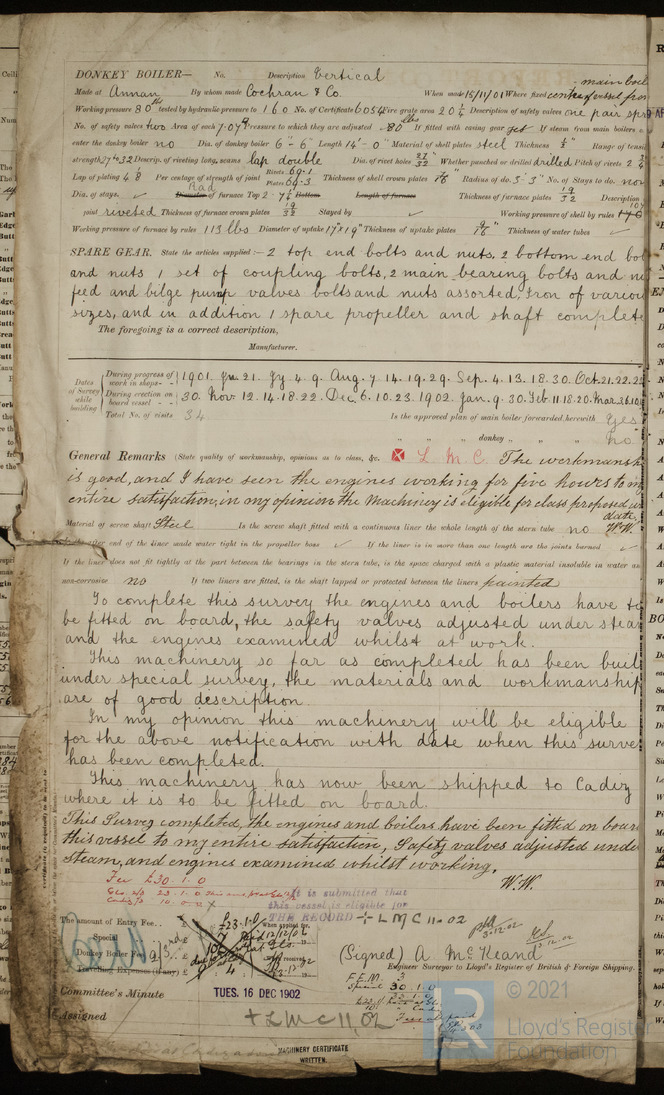 DONKEY BOILER— No. Description Vertical
Made at Annan By whom made Cochran & Co. When made 15/11/01 Where fixed centre of vessel
main boil
Working pressure 80 tested by hydraulic pressure to 160 No. of Certificate 6054 Fire grate area 20 ¼ Description of safety valves one pair spr
No. of safety valves two Area of each 7.07 Pressure to which they are adjusted 80 lbs If fitted with easing gear yes If steam from main boilers c
enter the donkey boiler no Dia. of donkey boiler 6'-6" Length 14'-0" Material of shell plates steel Thickness Range of tensi
strength 27 & 32 Descrip. of riveting long. seams lap double Dia. of rivet holes 27/32 Whether punched or drilled drilled Pitch of rivets 2
Lap of plating 4 Per centage of strength of joint Rivets 69.1 Plates 69.3 Thickness of shell crown plates Radius of do. 3'3" No. of Stays to do. non
Dia. of stays. ✓ Diameter Rad of furnace Top 2' Bottom Length of furnace Thickness of furnace plates 19/32 Description
joint riveted Thickness of furnace crown plates 19/32 Stayed by ✓ Working pressure of shell by rules 107
Working pressure of furnace by rules 113 lbs Diameter of uptake 17 x 19" Thickness of uptake plates Thickness of water tubes ✓
SPARE GEAR. State the articles supplied:— 2 top end bolts and nuts, 2 bottom end bol
and nuts 1 set of coupling bolts, 2 main bearing bolts and nu
feed and bilge pump valves bolts and nuts assorted, Iron of variou
sizes, and in addition 1 spare propeller and shaft complete
The foregoing is a correct description,
Manufacturer.
Dates of Survey while building
During progress of work in shops-- 1901. Ju. 21. Jy. 4. 9. Aug. 7. 14. 19. 29. Sep. 4. 13. 18. 30. Oct. 21. 22. 25
During erection on board vessel --- 30. Nov 12. 14. 18. 22. Dec. 6. 10. 23. 1902. Jan. 9. 30. Feb 11. 18. 20. Mar. 3. 6. 10
Total No. of visits 34 Is the approved plan of main boiler forwarded herewith Yes
" " donkey " " " no
General Remarks (State quality of workmanship, opinions as to class, &c. L M C. The workmansh
is good, and I have seen the engines working for five hours to my
entire satisfaction, in my opinion the Machinery is eligible for class proposed
date. W.W.
Material of screw shaft Steel Is the screw shaft fitted with a continuous liner the whole length of the stern tube no
the after end of the liner made water tight in the propeller boss ✓ If the liner is in more than one length are the joints burned ✓
If the liner does not fit tightly at the part between the bearings in the stern tube, is the space charged with a plastic material insoluble in water an
non-corrosive no If two liners are fitted, is the shaft lapped or protected between the liners painted
To complete this survey the engines and boilers have to
be fitted on board, the safety valves adjusted under stea
and the engines examined whilst at work.
This machinery so far as completed has been buil
under special survey, the materials and workmanship
are of good description.
In my opinion this machinery will be eligible
for the above notification with date when this surve
has been completed.
This machinery has now been shipped to Cadiz
where it is to be fitted on board.
This Survey completed, the engines and boilers have been fitted on boar
this vessel to my entire satisfaction, Safety valves adjusted unde
steam, and engines examined whilst working.
W.W.
Fee £30.1.0
It is submitted that
this vessel is eligible for
THE RECORD + L M C 11.02
The amount of Entry Fee.. £ 23.1.0 When applied for,
Special
Donkey Boiler Fee
Travelling Expenses (if any) £ 4
(Signed) A. McKeand
Engineer Surveyor to Lloyd's Register of British & Foreign Shipping.
Committee's Minute TUES. 16 DEC 1902
Assigned + L M C 11,02
F.E.M. 3
Special 30.1.0
MACHINERY CERTIFICATE
WRITTEN.
© 2021
Lloyd's Register
Foundation